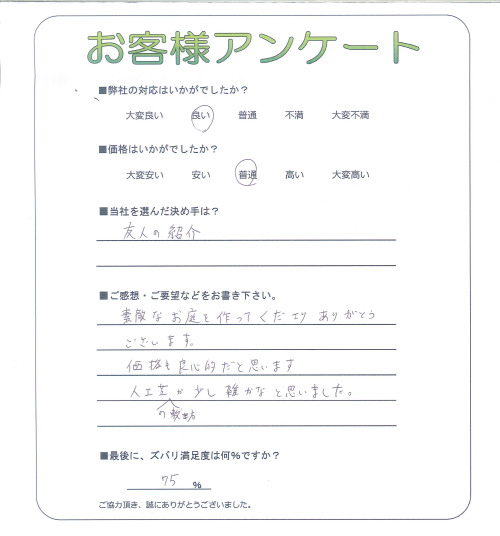 お客様アンケート
■弊社の対応はいかがでしたか？
大変良い 良い 普通 不満 大変不満
■価格はいかがでしたか？
大変安い 安い 普通 高い 大変高い
■当社を選んだ決め手は？
友人の紹介
■ご感想・ご要望などをお書き下さい。
素敵なお庭を作ってくださり ありがとう
ございます。
価格も良心的だと思います
人工芝が少し雑かなと思いました。
の
■最後に、ズバリ満足度は何％ですか？
75 %
ご協力頂き、誠にありがとうございました。